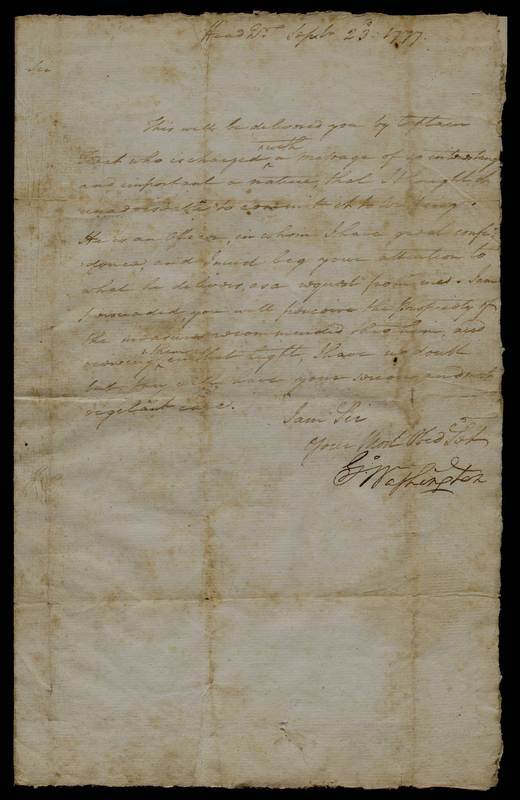 Head Qrs Septr 23d 1777.
Sir
This will be delivered you by Captain
who is charged with a message of so interesting
and important a nature, that I thought it
unadvisable to commit it to writing.
He is an Officer, in whom I have great confi-
dence, and I must beg your attention to
what he delivers, as a request from me. I am
persuaded you will perceive the propriety of
the measures recommended thro him, and
viewing them in that light, I have no doubt
but they will have your serious and most
vigilant care.
I am Sir
Your Most Obed Servt
Go Washington